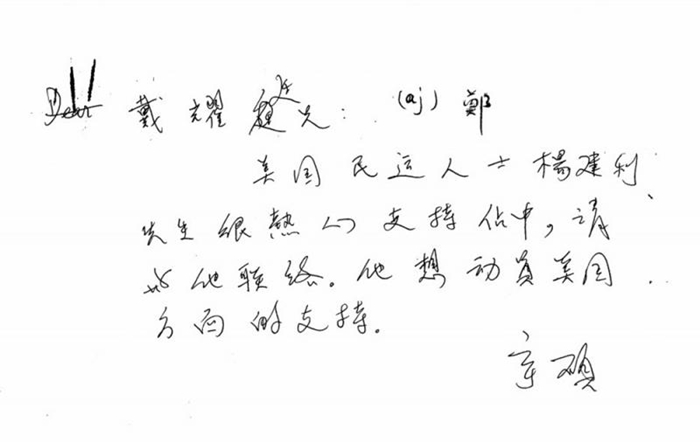 Dear 戴耀廷兄: (aj) 鄭
美国民运人士楊建利
先生很熱心支持佔中,请
与他联络。他想动員美国
方面的支持.
字碩